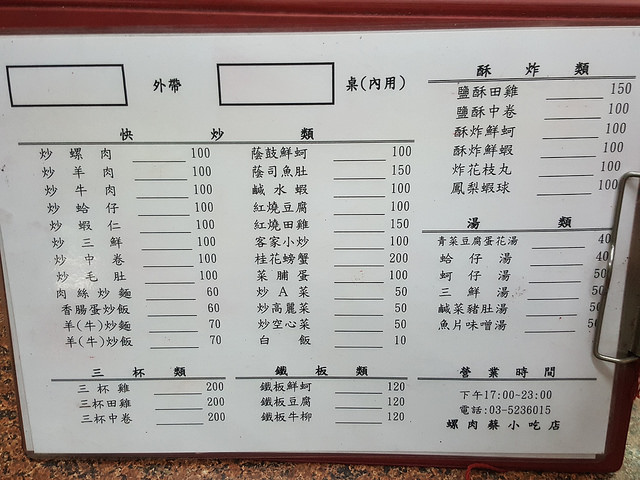 外帶
桌(內用)
快 炒 類
炒螺肉 100
炒羊肉 100
炒牛肉 100
炒蛤仔 100
炒蝦仁 100
炒三鮮 100
炒中卷 100
炒毛肚 100
肉絲炒麵 60
香腸蛋炒飯 60
羊(牛)炒麵 70
羊(牛)炒飯 70
蔭鼓鮮蚵 100
蔭司魚肚 150
鹹水蝦 100
紅燒豆腐 100
紅燒田雞 150
客家小炒 100
桂花螃蟹 200
菜脯蛋 100
炒A菜 50
炒高麗菜 50
炒空心菜 50
白飯 10
酥 炸 類
鹽酥田雞 150
鹽酥中卷 100
酥炸鮮蚵 100
酥炸鮮蝦 100
炸花枝丸 100
鳳梨蝦球 100
湯 類
青菜豆腐蛋花湯 40
蛤仔湯 40
蚵仔湯 50
三鮮湯 50
鹹菜豬肚湯 50
魚片味噌湯 50
三 杯 類
三杯雞 200
三杯田雞 200
三杯中卷 200
鐵 板 類
鐵板鮮蚵 120
鐵板豆腐 120
鐵板牛柳 120
營業時間
下午17:00~23:00
電話:03-5236015
螺肉蔡小吃店